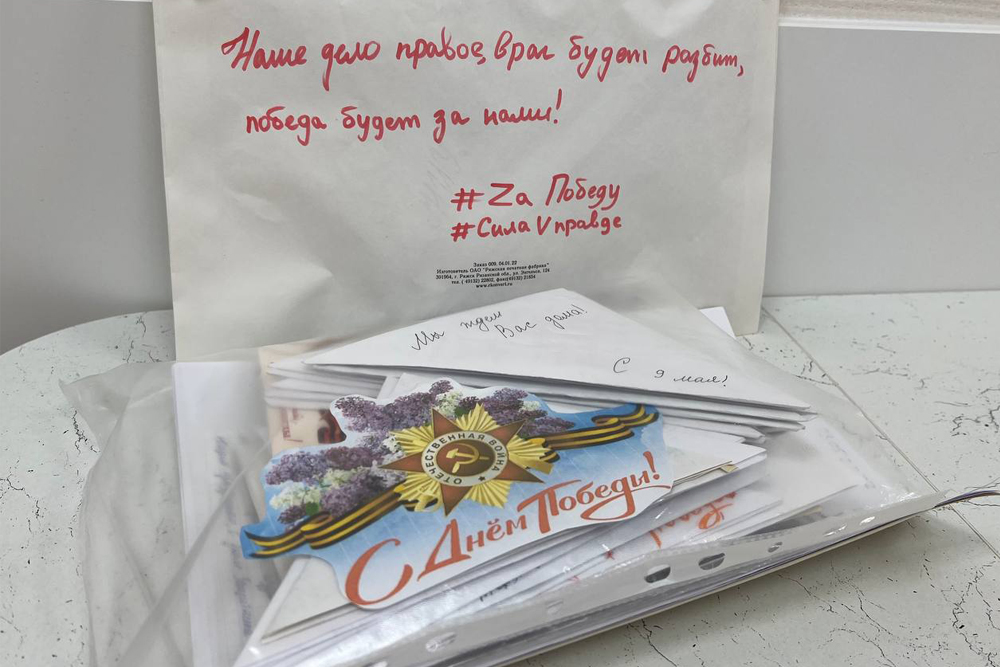 Наше дело правое, враг будет разбит,
победа будет за нами!
#Zа Победу
#Сила V правде
Заказ 009, 04.01.22
Изготовитель ОАО "Ряжская печатная фабрика"
www.
Мы ждем
Вас дома!
С 9 мая!
ОТЕЧЕСТВЕННАЯ ВОЙНА
С Днём Победы!